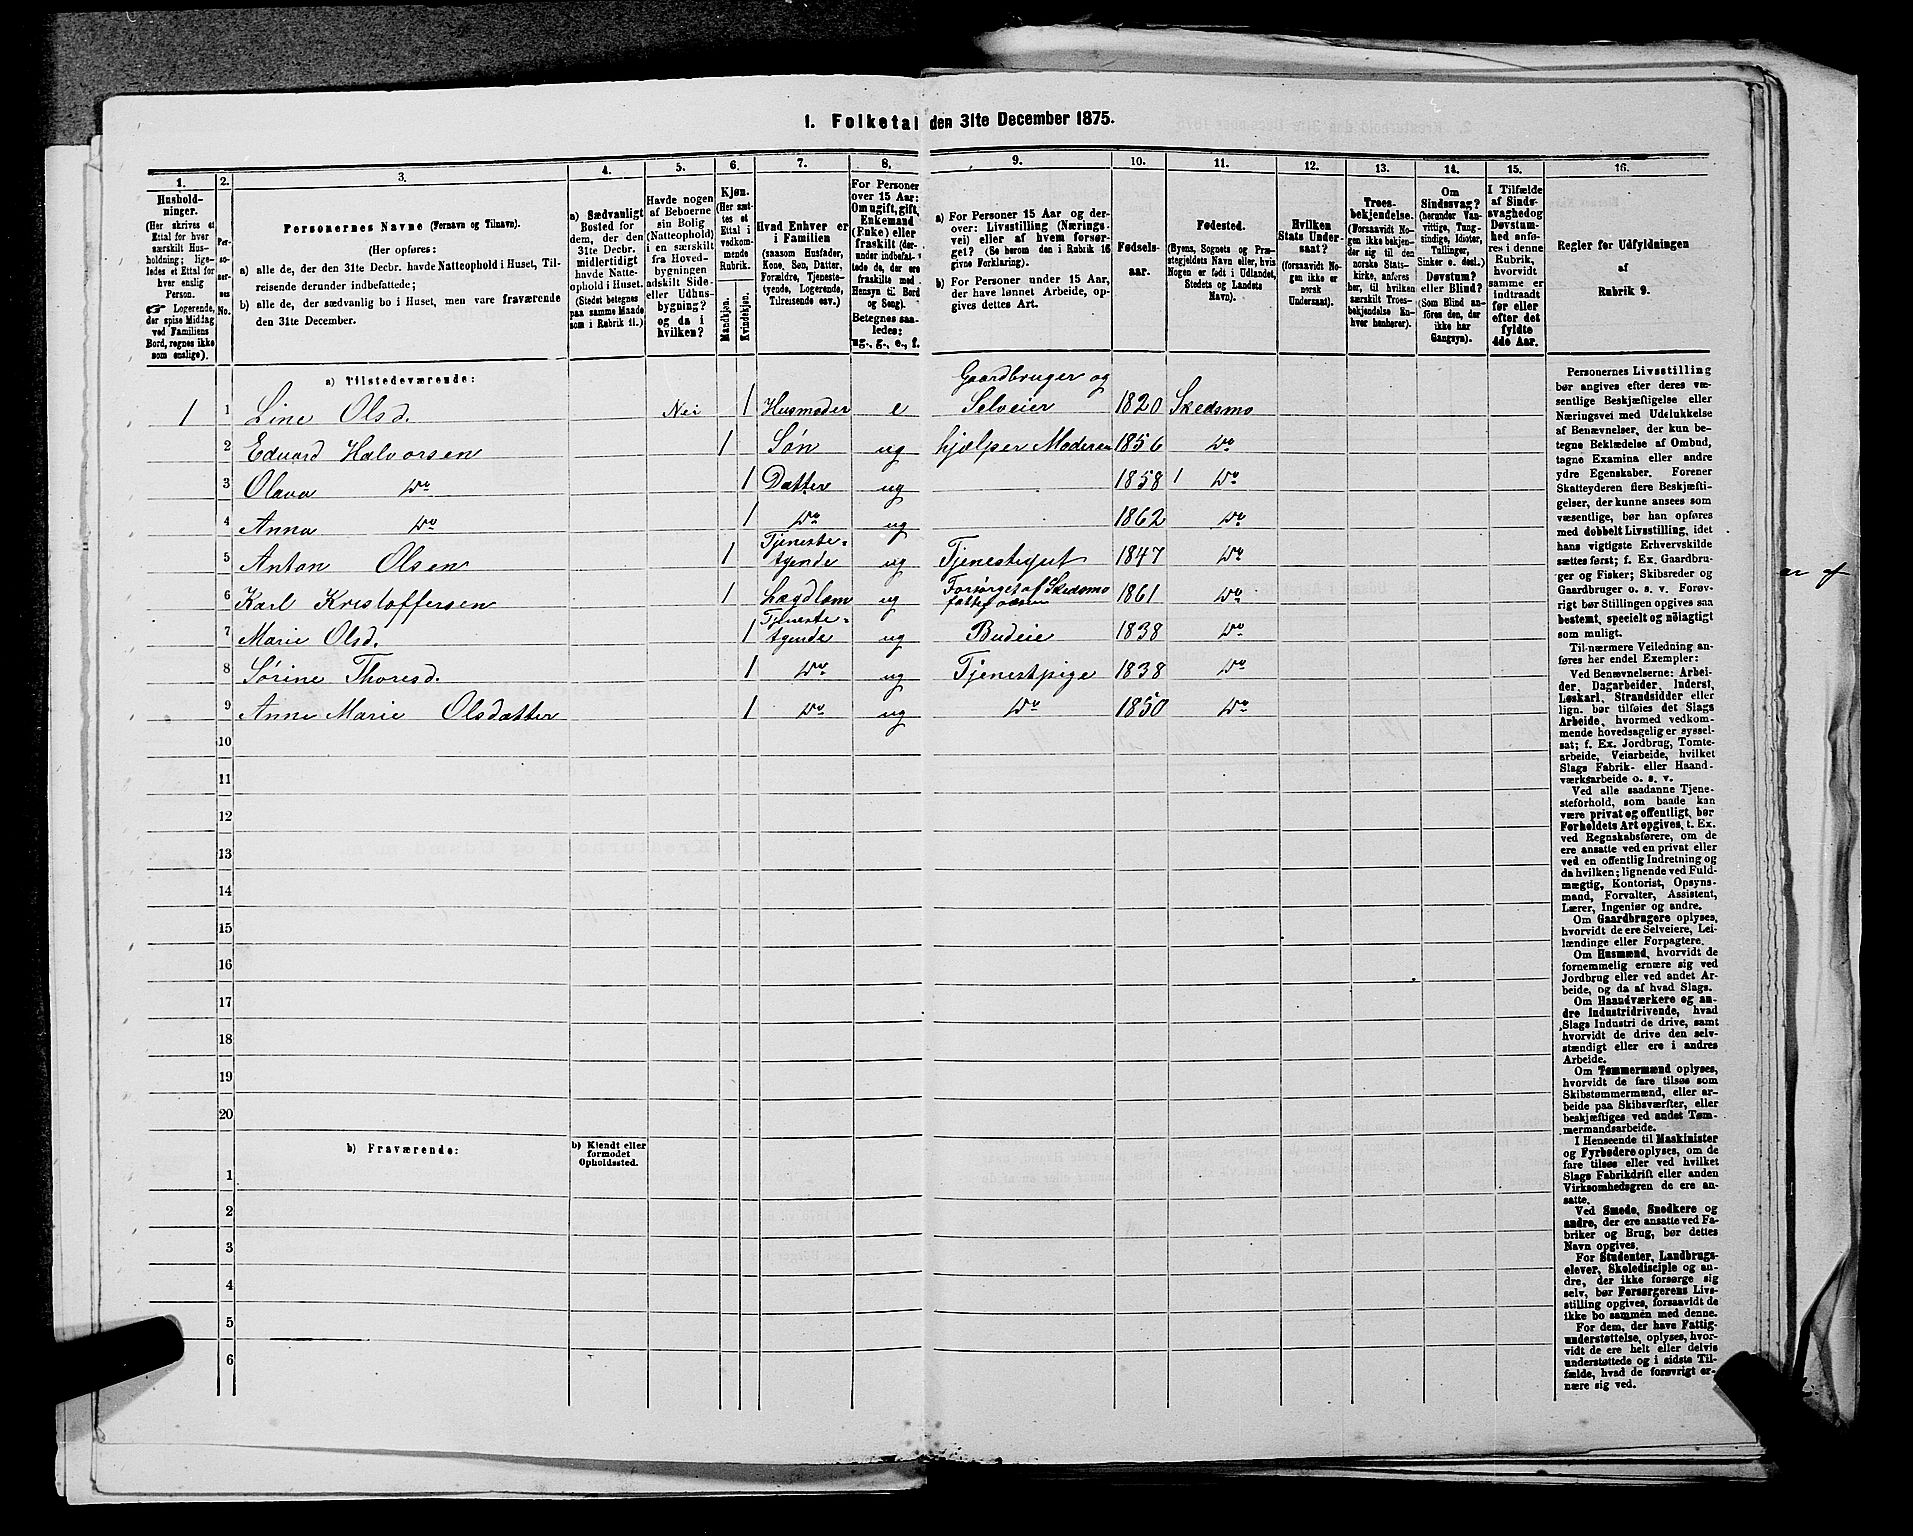 1. Folketal den 31te December 1875.
1.
2.
3.
4.
5.
6.
7.
8.
9.
10.
11.
12.
13.
14.
15.
16.
Hushold-
ninger.
(Her skrives et
Ettal for hver
særskilt Hus-
holdning; lige-
ledes et Ettal for
hver enslig
Person.
☞ Logerende,
der spise Middag
ved Familiens
Bord, regnes ikke
som enslige).
Per-
so-
ner-
nes
No.
Personernes Navne (Fornavn og Tilnavn).
(Her opføres:
a) alle de, der den 31te Decbr. havde Natteophold i Huset, Til-
reisende derunder indbefattede;
b) alle de, der sædvanlig bo i Huset, men vare fraværende
den 31te December.
a) Sædvanligt
Bosted for
dem, der den
31te Decbr.
midlertidigt
havde Natte-
ophold i Huset.
(Stedet betegnes
paa samme Maade
som i Rubrik 11.)
Havde nogen
af Beboerne
sin Bolig
(Natteophold)
i en særskilt
fra Hoved-
bygningen
adskilt Side-
eller Udhus-
bygning?
og da i
hvilken?
Kjøn.
(Her sæt-
tes et
Ettal i
vedkom-
mende
Rubrik.
Mandkjøn.
Kvindekjøn.
Hvad Enhver er
i Familien
(saasom Husfader,
Kone, Søn, Datter,
Forældre, Tjeneste-
tyende, Logerende,
Tilreisende osv.)
For Personer
over 15 Aar:
Om ugift, gift,
Enkemand
(Enke) eller
fraskilt (der-
under indbefat-
tede de, der ere
fraskilte med
Hensyn til Bord
og Seng).
Betegnes saa-
ledes:
ug., g., e., f.
a) For Personer 15 Aar og der-
over: Livsstilling (Nærings-
vei) eller af hvem forsør-
get? (Se herom den i Rubrik 16
givne Forklaring).
b) For Personer under 15 Aar,
der have lønnet Arbeide, op-
gives dettes Art.
Fødsels-
aar.
Fødested.
(Byens, Sognets og Præ-
stegjeldets Navn eller, hvis
Nogen er født i Udlandet,
Stedets og Landets
Navn).
Hvilken
Stats Under-
saat?
(forsaavidt No-
gen ikke er
norsk
Undersaat).
Troes-
bekjendelse.
(Forsaavidt No-
gen ikke bekjen-
der sig til den
norske Stats-
kirke, anføres
her, til hvilken
særskilt Troes-
bekjendelse En-
hver henhører).
Om
Sindssvag?
(herunder Van-
vittige, Tung-
sindige, Idioter,
Tullinger,
Sinker o. desl.)
Døvstum?
eller Blind?
(Som Blind an-
føres den, der
ikke har
Gangsyn).
I Tilfælde
af Sinds-
svaghed og
Døvstum-
hed anfø-
res i denne
Rubrik,
hvorvidt
samme er
indtraadt
før eller
efter det
fyldte
4de Aar.
Regler for Udfyldningen
af
Rubrik 9.
a) Tilstedeværende:
Gaardbruger og
1 1 Line Olsd. Nei 1 Husmoder e Selveier 1820 Skedsmo
2 Edvard Halvorsen 1 Søn ug hjælper Moderen 1856 Do
3 Olava Do 1 Datter ug 1858 Do
4 Anna Do 1 Do ug 1862 Do
Tjeneste-
5 Anton Olsen 1 tyende ug Tjenestegut 1847 Do
Forsørget af Skedsmo
6 Karl Kristoffersen 1 Lægdlam ug fattigvæsen 1861 Do
Tjeneste-
7 Marie Olsd. 1 tyende ug Budeie 1838 Do
8 Sørine Thoresd. 1 Do ug Tjenestpige 1838 Do
9 Anne Marie Olsdatter 1 Do ug Do 1850 Do
10
11
12
13
14
15
16
17
18
19
20
b) Fraværende:
b) Kjendt eller
formodet
Opholdssted.
1
2
3
4
5
6
Personernes Livsstilling
bør angives efter deres væ-
sentlige Beskjæftigelse eller
Næringsvei med Udelukkelse
af Benævnelser, der kun be-
tegne Beklædelse af Ombud,
tagne Examina eller andre
ydre Egenskaber. Forener
Skatteyderen flere Beskjæfti-
gelser, der kunne ansees som
væsentlige, bør han opføres
med dobbelt Livsstilling, idet
hans vigtigste Erhvervskilde
sættes først; f. Ex. Gaardbru-
ger og Fisker; Skibsreder og
Gaardbruger o. s. v. Forøv-
rigt bør Stillingen opgives saa
bestemt, specielt og nøiagtigt
som muligt.
Til nærmere Veiledning an-
føres her endel Exempler:
Ved Benævnelserne: Arbei-
der, Dagarbeider, Inderst,
Løskarl, Strandsidder eller
lign. bør tilføies det Slags
Arbeide, hvormed vedkom-
mende hovedsagelig er syssel-
sat; f. Ex. Jordbrug, Tomte-
arbeide, Veiarbeide, hvilket
Slags Fabrik- eller Haand-
værksarbeide o. s. v.
Ved alle saadanne Tjene-
steforhold, som baade kan
være privat og offentligt, bør
Forholdets Art opgives, t. Ex.
ved Regnskabsførere, om de
ere ansatte ved en privat eller
ved en offentlig Indretning og
da hvilken; lignende ved Fuld-
mægtig, Kontorist, Opsyns-
mand, Forvalter, Assistent,
Lærer, Ingeniør og andre.
Om Gaardbrugere oplyses,
hvorvidt de ere Selveiere, Lei-
lændinge eller Forpagtere.
Om Husmænd, hvorvidt de
fornemmelig ernære sig ved
Jordbrug eller ved andet Ar-
beide, og da af hvad Slags.
Om Haandværkere og an-
dre Industridrivende, hvad
Slags Industri de drive, samt
hvorvidt de drive den selv-
stændigt eller ere i andres
Arbeide.
Om Tømmermænd oplyses,
hvorvidt de fare tilsøs som
Skibstømmermænd, eller ar-
beide paa Skibsværfter, eller
beskjæftiges ved andet Tøm-
mermandsarbeide.
I Henseende til Maskinister
og Fyrbødere oplyses, om de
fare tilsøs eller ved hvilket
Slags Fabrikdrift eller anden
Virksomhedsgren de ere an-
satte.
Ved Smede, Snedkere og
andre, der ere ansatte ved Fa-
briker og Brug, bør dettes
Navn opgives.
For Studenter, Landbrugs-
elever, Skoledisciple og an-
dre, der ikke forsørge sig
selv, bør Forsørgerens Livs-
stilling opgives, forsaavidt de
ikke bo sammen med denne.
For dem, der have Fattig-
understøttelse, oplyses, hvor-
vidt de ere helt eller delvis
understøttede og i sidste Til-
fælde, hvad de forøvrigt er-
nære sig ved.